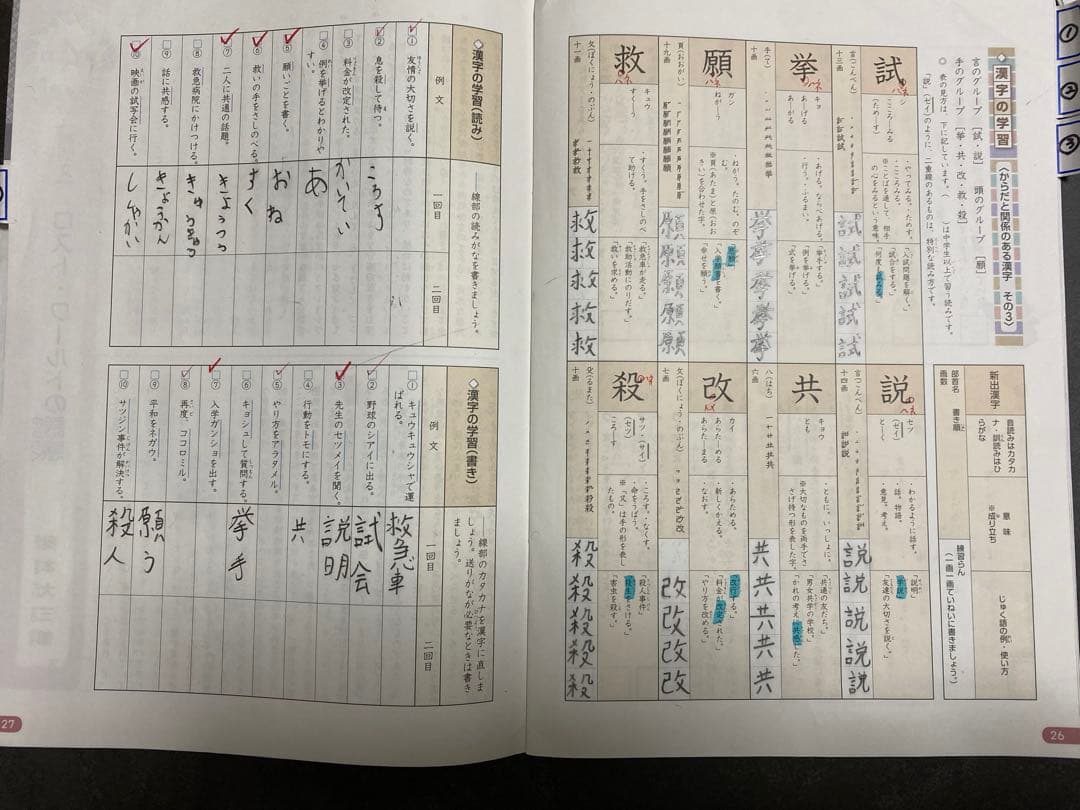 漢字の学習 〈からだと関係のある漢字 その3〉
言のグループ 【試・説】 頭のグループ 【願】
手のグループ 【挙・共・改・救・殺】
○ 表の見方は、下に記しています。( )は中学生以上で習う読みです。
「説」(セイ)のように、二重線のあるものは、特別な読み方です。
新出漢字
部首名 書き順
画数
音読みはカタカナ・訓読みはひらがな
意味
※成り立ち
じゅく語の例・使い方
練習らん(一画一画ていねいに書きましょう。)
試
言(ごんべん)
十三画
シ
こころーみる
(ためーす)
・やってみる。ためす。
・こころみる。
「入試問題を解く。」
「試合をする。」
「何度も試みる。」
試試試試試
挙
手(て)
十画
キョ
あーげる
あーがる
・あげる。ならべあげる。
・行う。ふるまい。
「挙手する。」
「例を挙げる。」
「式を挙げる。」
挙挙挙挙挙
願
頁(おおがい)
十九画
ガン
ねがーう
・ねがう。たのむ。のぞむ。
「入学願書を書く。」
「幸せを願う。」
願願願願願
救
攵(ぼくにょう・のぶん)
十一画
キュウ
すくーう
・すくう。手をさしのべて助ける。
「救急車が走る。」
「救助活動にのりだす。」
「救いを求める。」
救救救救救
説
言(ごんべん)
十四画
セツ
(セイ)
とーく
・わかるように話す。
・話。物語。
・意見。考え。
「説明」
「友達の大切さを説く。」
説説説説説
共
八(はち)
六画
キョウ
とも
・ともに。いっしょに。
※大切なものを両手でささげ持つ形を表した字。
「共通の友だち。」
「男女共学の学校。」
「かれの考えに共感した。」
共共共共共
改
攵(ぼくにょう・のぶん)
七画
カイ
あらたーめる
あらたーまる
・あらためる。
・新しくかえる。
・なおす。
「改行する。」
「料金が改定された。」
「やり方を改める。」
改改改改
殺
殳(るまた)
十画
サツ・(サイ)
(セツ)
ころーす
・ころす。なくす。
・命をうばう。
※「又」は手の形を表したもの。
「殺人事件」
「殺生をさける。」
「害虫を殺す。」
殺殺殺殺殺
26
漢字の学習(読み)
――線部の読みがなを書きましょう。
例文
一回目
二回目
① 友情の大切さを説く。
② 息を殺して待つ。
ころす
③ 料金が改定された。
かいてい
④ 例を挙げるとわかりやすい。
あ
⑤ 願いごとを書く。
おね
⑥ 救いの手をさしのべる。
すく
⑦ 二人に共通の話題。
きょうつう
⑧ 救急病院にかけつける。
⑨ 話に共感する。
⑩ 映画の試写会に行く。
漢字の学習(書き)
――線部のカタカナを漢字に直しましょう。送りがなが必要なときは書きましょう。
例文
一回目
二回目
① キュウキュウシャで運ばれる。
救急車
② 野球のシアイに出る。
試会
③ 先生のセツメイを聞く。
説明
④ 行動をトモにする。
共
⑤ やり方をアラタメル。
⑥ キョシュして質問する。
挙手
⑦ 入学ガンショを出す。
⑧ 再度、ココロミル。
⑨ 平和をネガウ。
願う
⑩ サツジン事件が解決する。
殺人
27
①
②
③